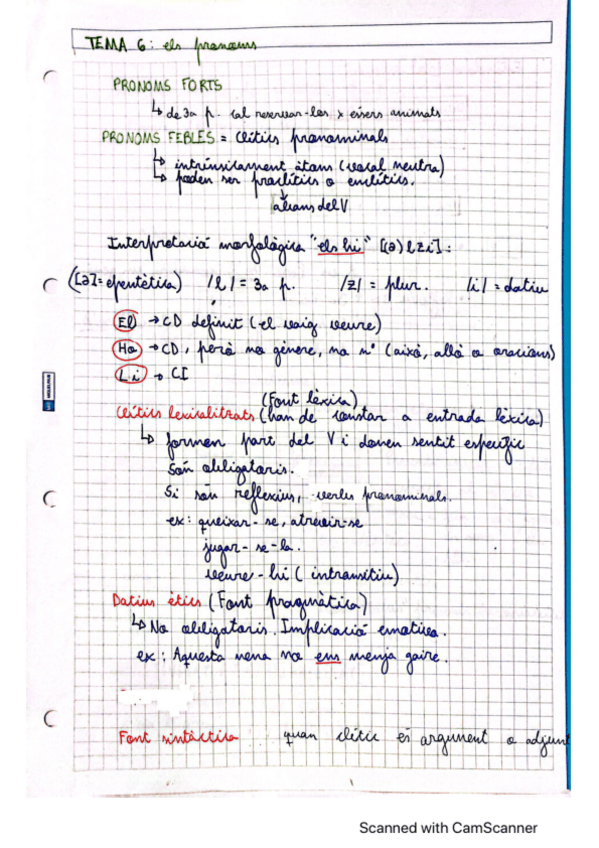 TEMA 6: els pronoms
PRONOMS FORTS
↳ de 3a p. cal reservar-los x éssers animats
PRONOMS FEBLES = clítics pronominals
↳ intrínsicament àtons (vocal neutra)
↳ poden ser proclítics o enclítics.
↓
abans del V
Interpretació morfològica "els hi" [(ə) l z i]:
([ə]= epentètica) /l/ = 3a p. /z/ = plur. /i/ = datiu
El → CD definit (el vaig veure)
Ho → CD, però no gènere, no nº (això, allò o oracions)
Li → CI
(Font lèxica)
Clítics lexicalitzats (han de constar a entrada lèxica)
↳ formen part del V i donen sentit específic
Són obligatoris.
Si són reflexius, verbs pronominals.
ex: queixar-se, atrevir-se
jugar-se-la.
veure-hi (intransitiu)
Datius ètics (Font pragmàtica)
↳ No obligatoris. Implicació emotiva.
ex: Aquesta nena no ens menja gaire.
Font sintàctica quan clític és argument o adjunt
Scanned with CamScanner